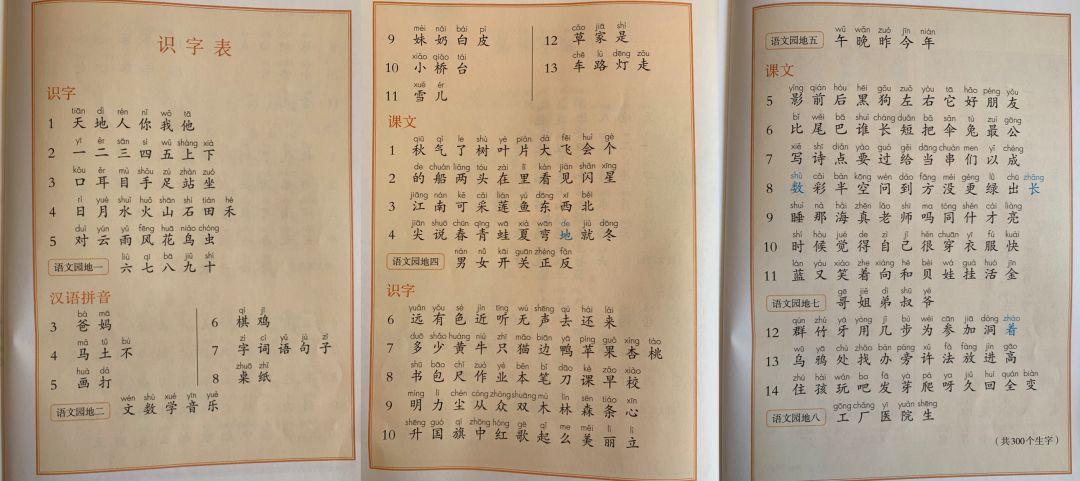 识字表
识字
tiān dì rén nǐ wǒ tā
1 天地人你我他
yī èr sān sì wǔ shàng xià
2 一二三四五上下
kǒu ěr mù shǒu zú zhàn zuò
3 口耳目手足站坐
rì yuè shuǐ huǒ shān shí tián hé
4 日月水火山石田禾
duì yún yǔ fēng huā niǎo chóng
5 对云雨风花鸟虫
liù qī bā jiǔ shí
语文园地一 六七八九十
汉语拼音
bà mā
3 爸妈
mǎ tǔ bù
4 马土不
huà dǎ
5 画打
qí jī
6 棋鸡
zì cí yǔ jù zǐ
7 字词语句子
zhuō zhǐ
8 桌纸
wén shù xué yīn yuè
语文园地二 文数学音乐
mèi nǎi bái pí
9 妹奶白皮
xiǎo qiáo tái
10 小桥台
xuě ér
11 雪儿
cǎo jiā shì
12 草家是
chē lù dēng zǒu
13 车路灯走
课文
qiū qì le shù yè piàn dà fēi huì gè
1 秋气了树叶片大飞会个
de chuán liǎng tóu zài lǐ kàn jiàn shǎn xīng
2 的船两头在里看见闪星
jiāng nán kě cǎi lián yú dōng xī běi
3 江南可采莲鱼东西北
jiān shuō chūn qīng wā xià wān de jiù dōng
4 尖说春青蛙夏弯地就冬
nán nǚ kāi guān zhèng fǎn
语文园地四 男女开关正反
识字
yuǎn yǒu sè jìn tīng wú shēng qù hái lái
6 远有色近听无声去还来
duō shǎo huáng niú zhī māo biān yā píng guǒ xìng táo
7 多少黄牛只猫边鸭苹果杏桃
shū bāo chǐ zuò yè běn bǐ dāo kè zǎo xiào
8 书包尺作业本笔刀课早校
míng lì chén cóng zhòng shuāng mù lín sēn tiáo xīn
9 明力尘从众双木林森条心
shēng guó qí zhōng hóng gē qǐ me měi lì lì
10 升国旗中红歌起么美丽立
wǔ wǎn zuó jīn nián
语文园地五 午晚昨今年
课文
yǐng qián hòu hēi gǒu zuǒ yòu tā hǎo péng yǒu
5 影前后黑狗左右它好朋友
bǐ wěi bā shuí cháng duǎn bǎ sǎn tù zuì gōng
6 比尾巴谁长短把伞兔最公
xiě shī diǎn yào guò gěi dāng chuàn men yǐ chéng
7 写诗点要过给当串们以成
shù cǎi bàn kōng wèn dào fāng méi gèng lǜ chū zhǎng
8 数彩半空问到方没更绿出长
shuì nà hǎi zhēn lǎo shī ma tóng shén cái liàng
9 睡那海真老师吗同什才亮
shí hòu jué de zì jǐ hěn chuān yī fú kuài
10 时候觉得自己很穿衣服快
lán yòu xiào zhe xiàng hé bèi wá guà huó jīn
11 蓝又笑着向和贝娃挂活金
gē jiě dì shū yé
语文园地七 哥姐弟叔爷
qún zhú yá yòng jǐ bù wéi cān jiā dòng zháo
12 群竹牙用几步为参加洞着
wū yā chù zhǎo bàn páng xǔ fǎ fàng jìn gāo
13 乌鸦处找办旁许法放进高
zhù hái wán ba fā yá pá ya jiǔ huí quán biàn
14 住孩玩吧发芽爬呀久回全变
gōng chǎng yī yuàn shēng
语文园地八 工厂医院生
（共300个生字）